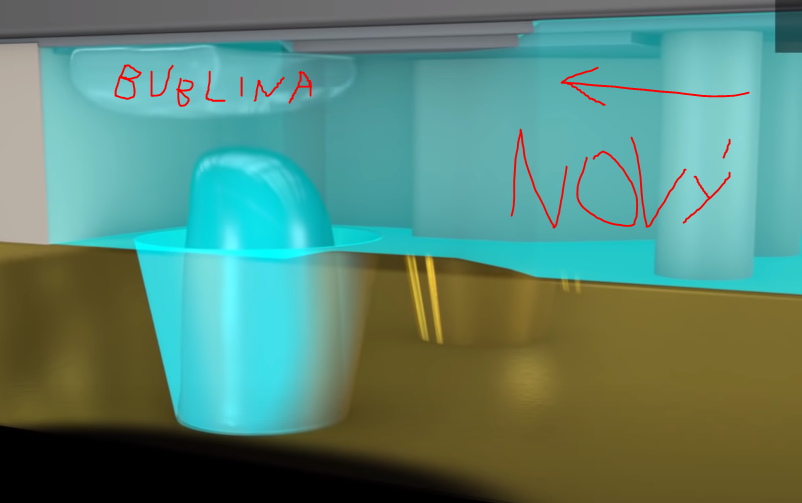 BUBLINA
NOVÝ